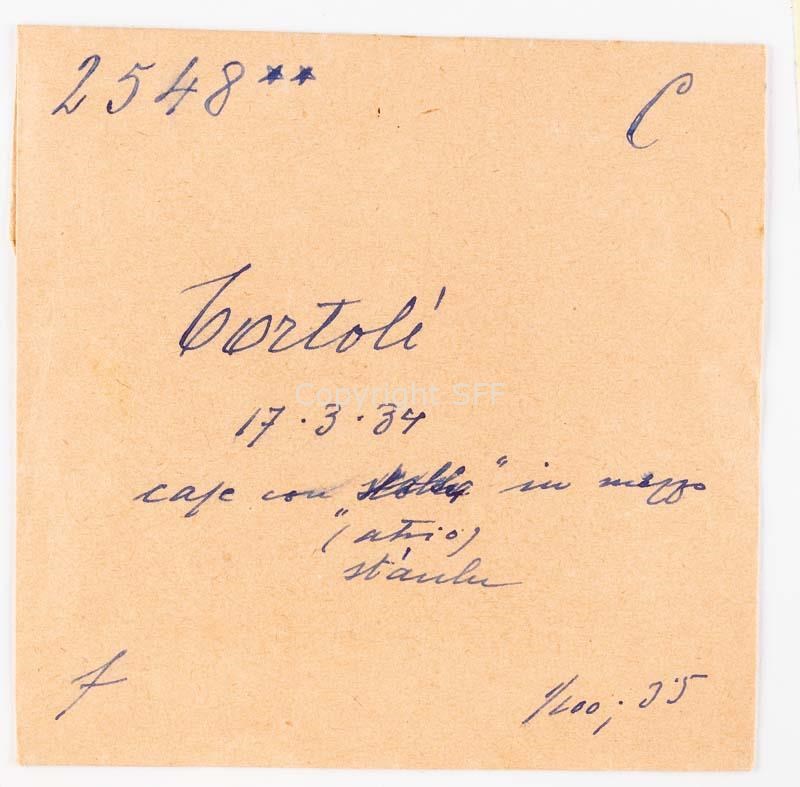 2548** C
Tortolì
Copyright SFF
17.3.34
case con " in mezzo
"(atrio)
stáulu
f
1/100; 35